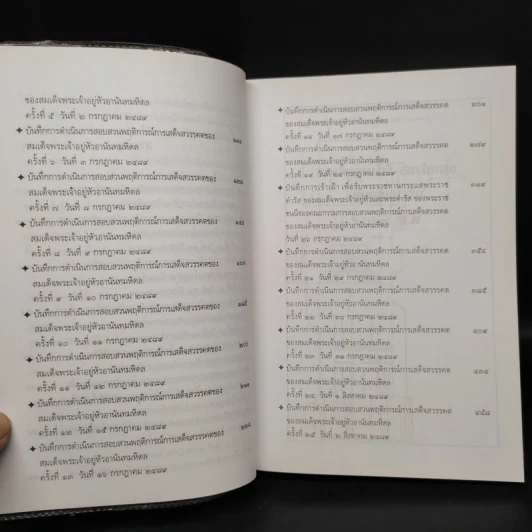 ของสมเด็จพระเจ้าอยู่หัวอานันทมหิดล
ครั้งที่ ๕ วันที่ ๒ กรกฎาคม ๒๔๘๙
✦ บันทึกการดำเนินการสอบสวนพฤติการณ์การเสด็จสวรรคตของ
สมเด็จพระเจ้าอยู่หัวอานันทมหิดล
ครั้งที่ ๖ วันที่ ๓ กรกฎาคม ๒๔๘๙
✦ บันทึกการดำเนินการสอบสวนพฤติการณ์การเสด็จสวรรคตของ
สมเด็จพระเจ้าอยู่หัวอานันทมหิดล
ครั้งที่ ๗ วันที่ ๘ กรกฎาคม ๒๔๘๙
✦ บันทึกการดำเนินการสอบสวนพฤติการณ์การเสด็จสวรรคตของ
สมเด็จพระเจ้าอยู่หัวอานันทมหิดล
ครั้งที่ ๘ วันที่ ๙ กรกฎาคม ๒๔๘๙
✦ บันทึกการดำเนินการสอบสวนพฤติการณ์การเสด็จสวรรคตของ
สมเด็จพระเจ้าอยู่หัวอานันทมหิดล
ครั้งที่ ๙ วันที่ ๑๐ กรกฎาคม ๒๔๘๙
✦ บันทึกการดำเนินการสอบสวนพฤติการณ์การเสด็จสวรรคตของ
สมเด็จพระเจ้าอยู่หัวอานันทมหิดล
ครั้งที่ ๑๐ วันที่ ๑๑ กรกฎาคม ๒๔๘๙
✦ บันทึกการดำเนินการสอบสวนพฤติการณ์การเสด็จสวรรคตของ ๒๐๐
สมเด็จพระเจ้าอยู่หัวอานันทมหิดล
ครั้งที่ ๑๑ วันที่ ๑๒ กรกฎาคม ๒๔๘๙
✦ บันทึกการดำเนินการสอบสวนพฤติการณ์การเสด็จสวรรคตของ
สมเด็จพระเจ้าอยู่หัวอานันทมหิดล
ครั้งที่ ๑๒ วันที่ ๑๕ กรกฎาคม ๒๔๘๙
✦ บันทึกการดำเนินการสอบสวนพฤติการณ์การเสด็จสวรรคตของ
สมเด็จพระเจ้าอยู่หัวอานันทมหิดล
ครั้งที่ ๑๓ วันที่ ๑๖ กรกฎาคม ๒๔๘๙
✦ บันทึกการดำเนินการสอบสวนพฤติการณ์การเสด็จสวรรคต ๒๖๑
ของสมเด็จพระเจ้าอยู่หัวอานันทมหิดล
ครั้งที่ ๑๔ วันที่ ๑๗ กรกฎาคม ๒๔๘๙
✦ บันทึกการดำเนินการสอบสวนพฤติการณ์การเสด็จสวรรคต
ของสมเด็จพระเจ้าอยู่หัวอานันทมหิดล
วันที่ ๑๙ กรกฎาคม ๒๔๘๙
✦ บันทึกการเข้าเฝ้า เพื่อรับพระราชทานกระแสพระราช
ดำรัส ของสมเด็จพระเจ้าอยู่หัวและพระดำรัส ของพระราช
ชนนีของคณะกรรมการสอบสวนพฤติการณ์การเสด็จสวรรคต
ของสมเด็จพระเจ้าอยู่หัวอานันทมหิดล
กรกฎาคม ๒๔๘๙
✦ บันทึกการดำเนินการสอบสวนพฤติการณ์การเสด็จสวรรคต ๓๕๔
ของสมเด็จพระเจ้าอยู่หัวอานันทมหิดล
ครั้งที่ ๒๑ วันที่ ๒๙ กรกฎาคม ๒๔๘๙
✦ บันทึกการดำเนินการสอบสวนพฤติการณ์การเสด็จสวรรคต ๓๘๕
ของสมเด็จพระเจ้าอยู่หัวอานันทมหิดล
ครั้งที่ ๒๒ วันที่ ๓๐ กรกฎาคม ๒๔๘๙
✦ บันทึกการดำเนินการสอบสวนพฤติการณ์การเสด็จสวรรคต
ของสมเด็จพระเจ้าอยู่หัวอานันทมหิดล
ครั้งที่ ๒๓ วันที่ ๓๑ กรกฎาคม ๒๔๘๙
✦ บันทึกการดำเนินการสอบสวนพฤติการณ์การเสด็จสวรรคต ๔๓๔
ของสมเด็จพระเจ้าอยู่หัวอานันทมหิดล
ครั้งที่ ๒๔ วันที่ ๑ สิงหาคม ๒๔๘๙
✦ บันทึกการดำเนินการสอบสวนพฤติการณ์การเสด็จสวรรคต ๔๕๘
ของสมเด็จพระเจ้าอยู่หัวอานันทมหิดล
ครั้งที่ ๒๕ วันที่ ๒ สิงหาคม ๒๔๘๙